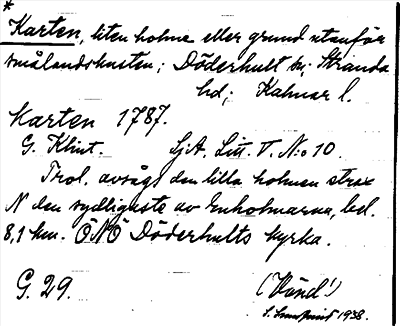 *
Karten, liten holme eller grund utanför
smålandskusten; Döderhult sn; Stranda
hd; Kalmar l.
Karten 1787.
G. Klint. SjA. Litt. V. N:o 10.
Trol. avsågs den lilla holmen strax
N den sydligaste av Enholmarna, bel.
8,1 km. ÖNÖ Döderhults kyrka.
G. 29. (Vänd!)
1938.